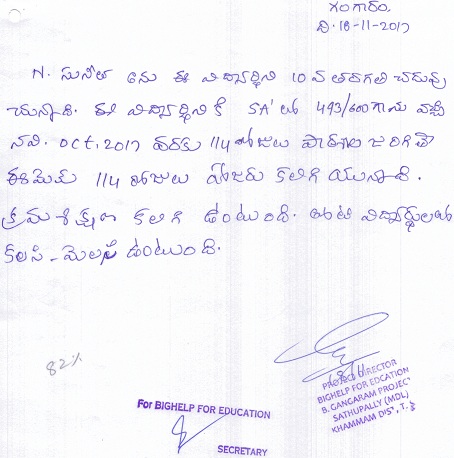 గంగారం,
ది. 18-11-2017
N. సునీత అను ఈ విద్యార్థిని 10 వ తరగతి చదువు
చున్నాది. ఈ విద్యార్థిని కి SA' లో 493/600 గాను వచ్చి
నవి. OCT, 2017 వరకు 114 రోజులు పాఠశాల జరిగితే
ఈమె 114 రోజులు హాజరు కలిగి యున్నాది.
క్రమశిక్షణ కలిగి ఉంటుంది. తోటి విద్యార్థులతో
కలసి - మెలసి ఉంటుంది.
82%
For BIGHELP FOR EDUCATION
SECRETARY
PROJECT DIRECTOR
BIGHELP FOR EDCATION
B. GANGARAM PROJECT
SATHUPALLY (MDL)
KHAMMAM DIST, T.S